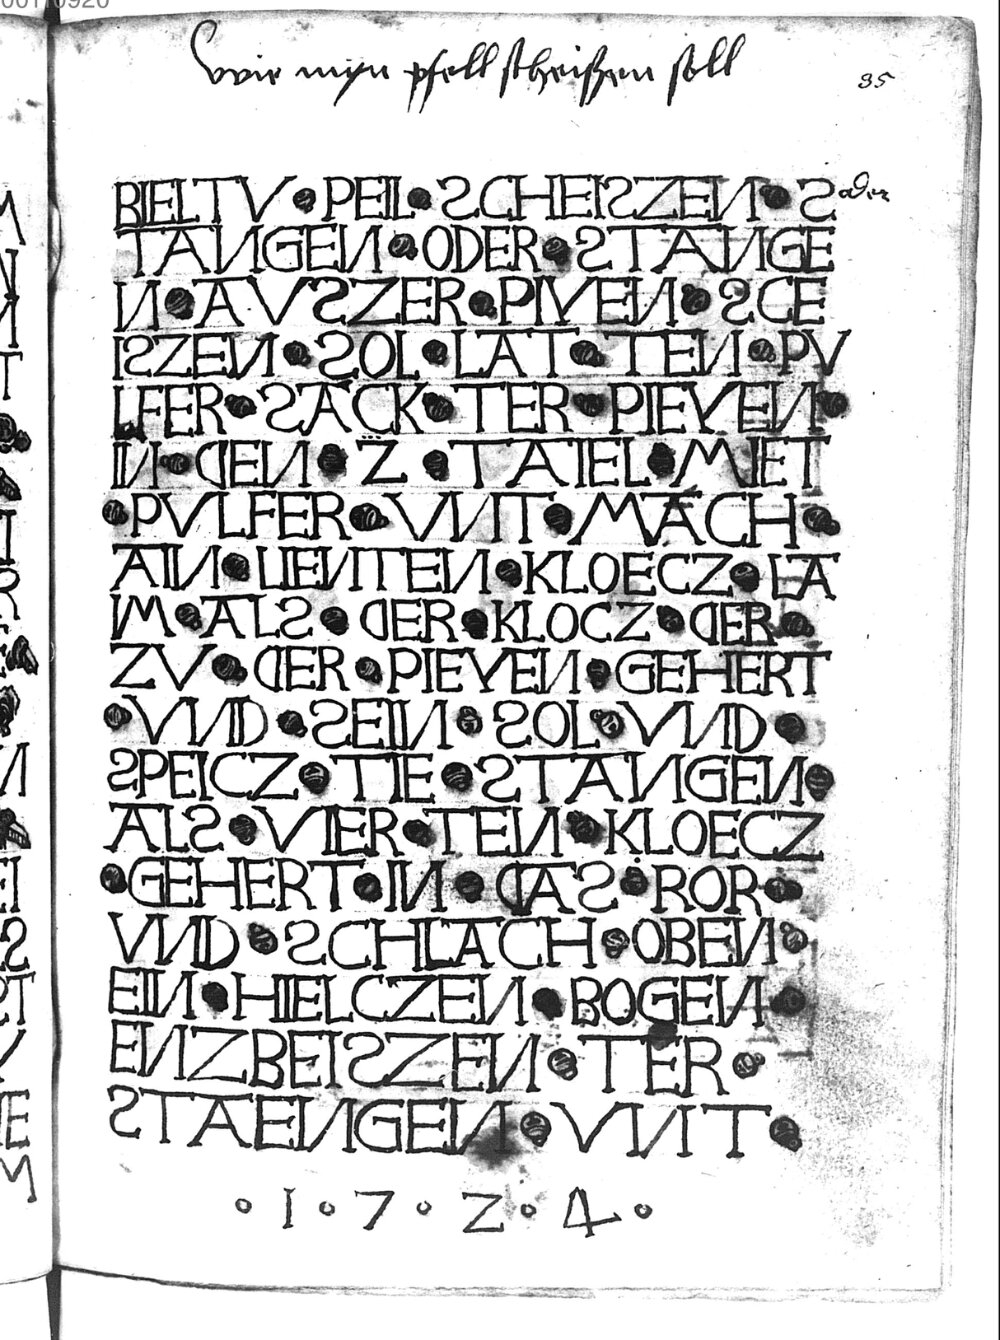 wie myn pfell scheißen soll
35
BIELTV • PEIL • SCHEISZEN • S oder
TANGEN • ODER • STANGE
N • AVSZER • PIVEN • SCE
ISZEN • SOL • LAT • TEN • PV
LFER • SACK • TER • PIEVEN •
IN • DEN • Z • TAIEL • MIET
• PVLFER • VNIT • MACH •
AIN • LIENITEN • KLOECZ • LA
IM • ALS • DER • KLOCZ • DER •
ZV • DER • PIEVEN • GEHERT
• VND • SEIN • SOL • VND •
SPEICZ • TIE • STANGEN •
ALS • VIER • TEN • KLOECZ
• GEHERT • IN • DAS • ROR •
VND • SCHLACH • OBEN •
EIN • HIELCZEN • BOGEN •
ENZBEISZEN • TER •
STAENGEN • VNIT •
• 1 • 7 • 2 • 4 •